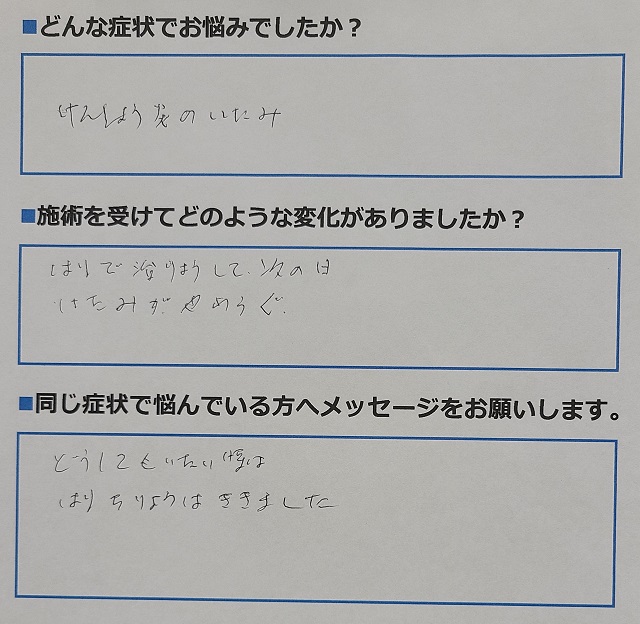 ■どんな症状でお悩みでしたか？
けんしょう炎のいたみ
■施術を受けてどのような変化がありましたか？
はりで治りようして、次の日
いたみが
■同じ症状で悩んでいる方へメッセージをお願いします。
どうしてもいたい時は
はりちりようはききました